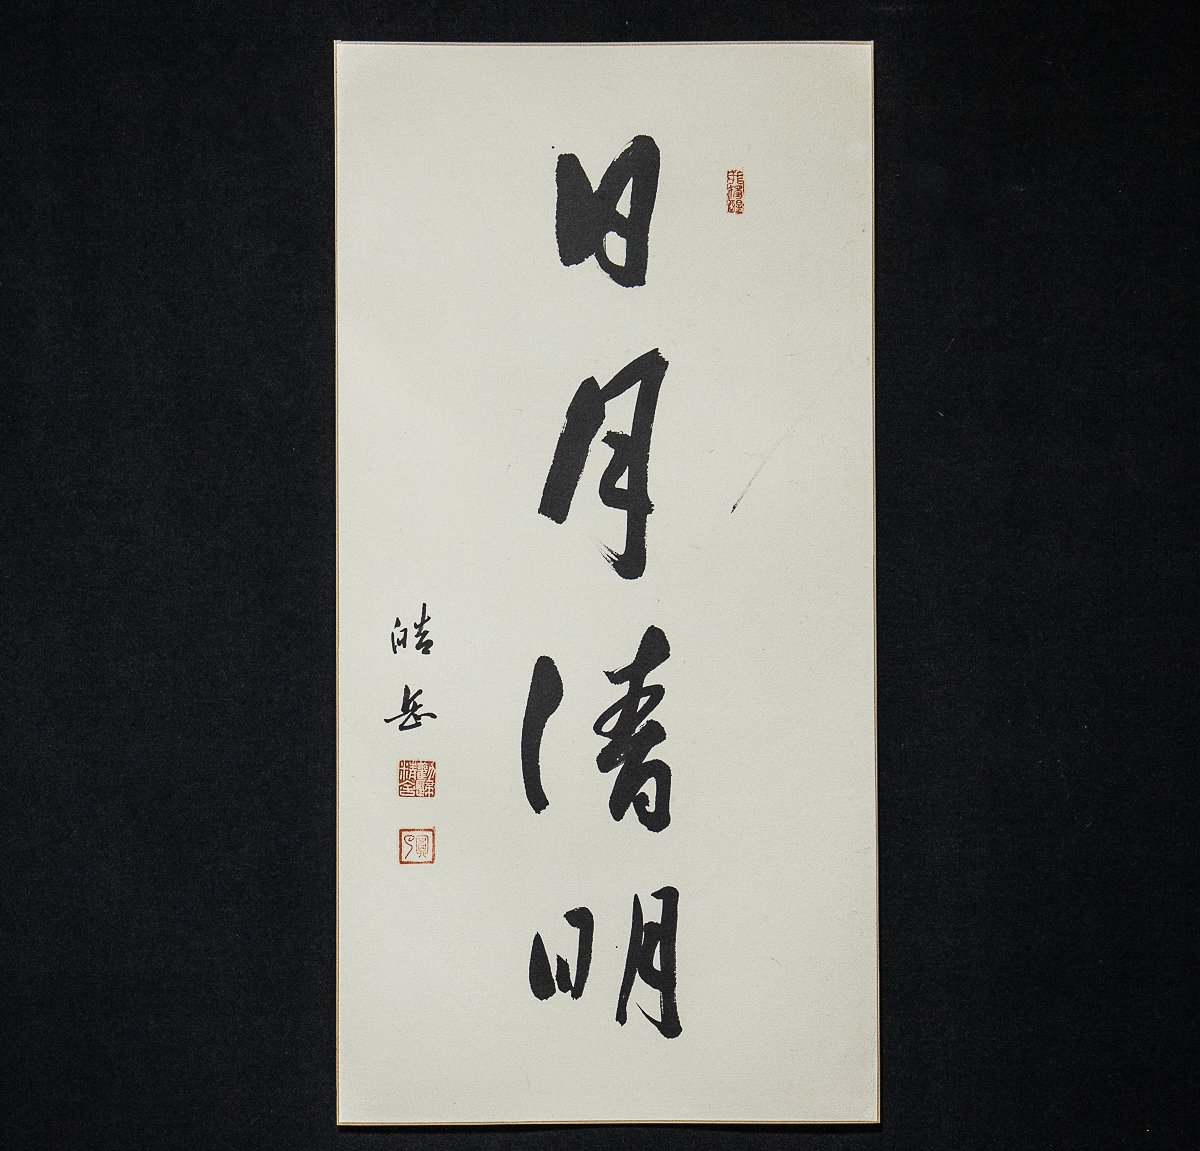 日月清明
皓岳